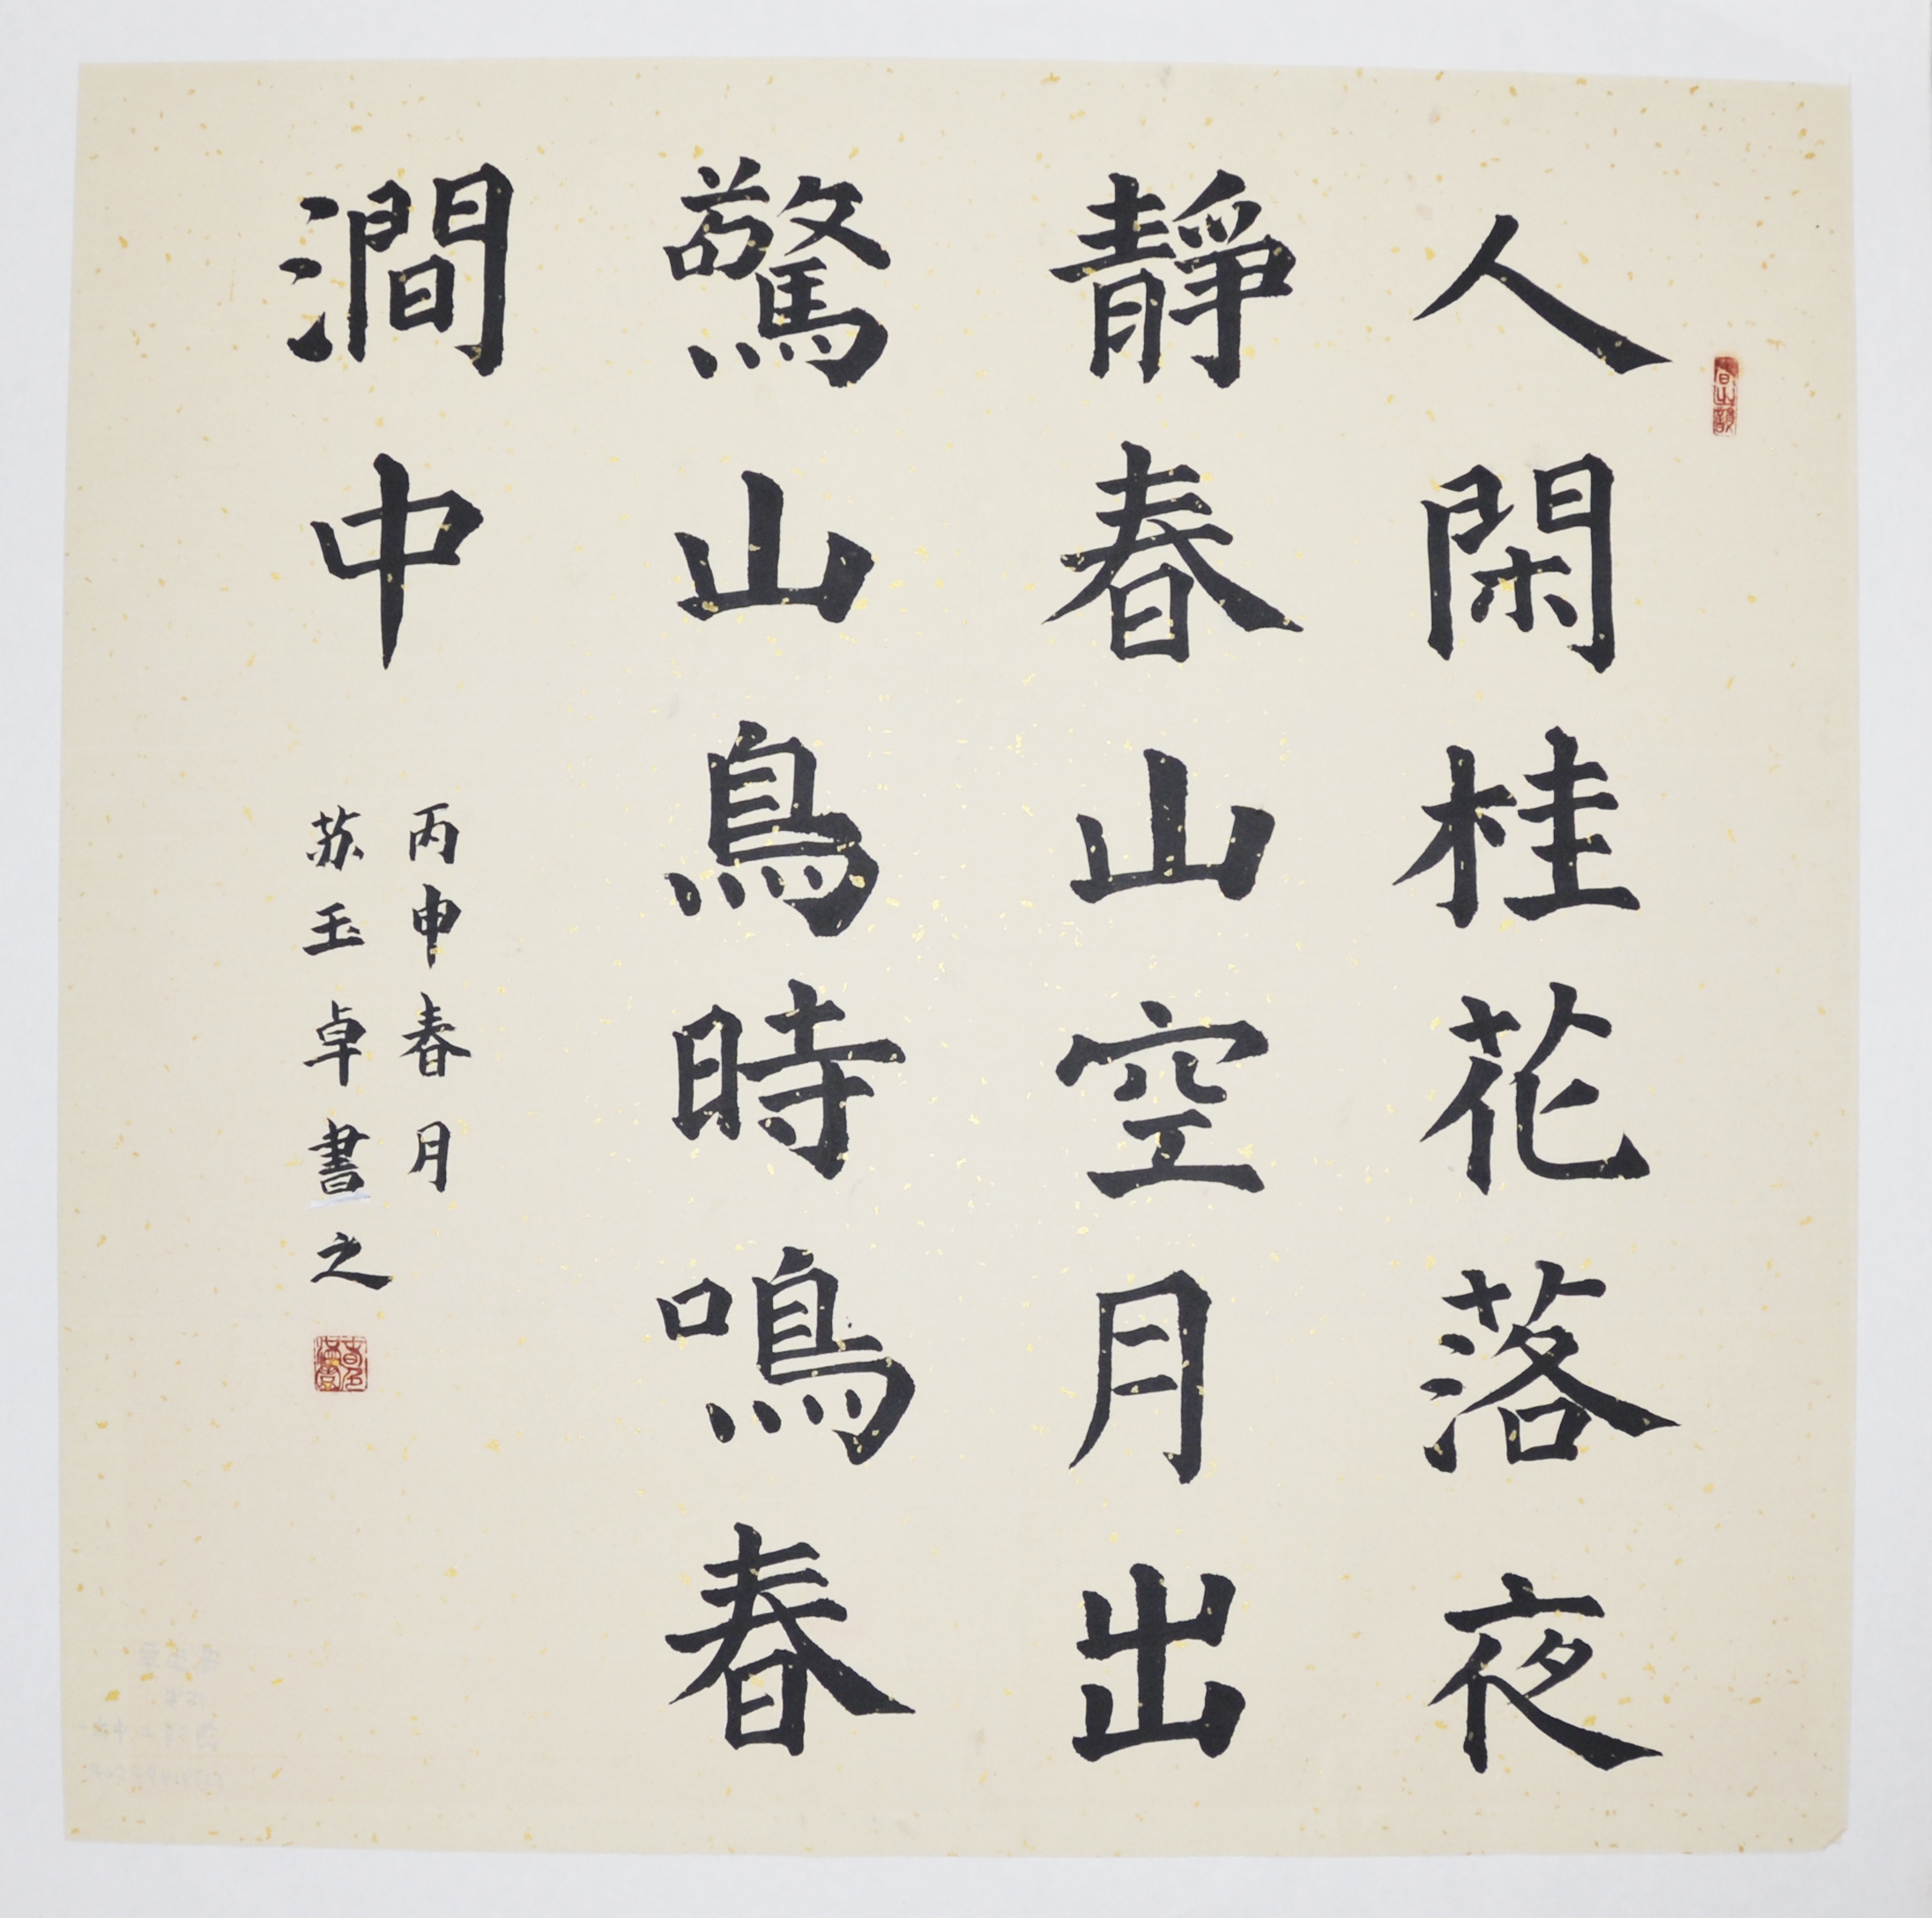 人閑桂花落夜
靜春山空月出
驚山鳥時鳴春
澗中
丙申春月
苏玉卓書之